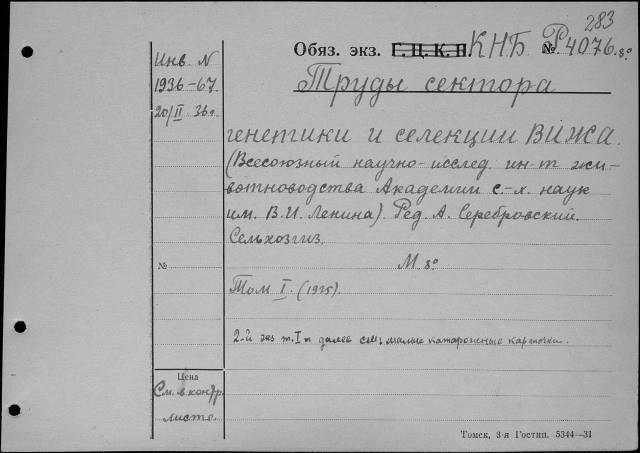 283
Обяз. экз. Г. Ц. К. П. КНБ № Р4076. 8º
Инв. N
1936-67.
20/II 36г.
Труды сектора
генетики и селекции ВИЖА.
(Всесоюзный научно-исслед. ин-т жи-
вотноводства Академии с.-х. наук
им. В.И. Ленина) Ред. А. Серебровский.
Сельхозгиз.
№ М. 8º
Том I. (1935).
2-й экз. т. I и далее см. малые
карточки.
Цена
См. в контр.
листе
Томск, 3-я Гостип. 5344—31